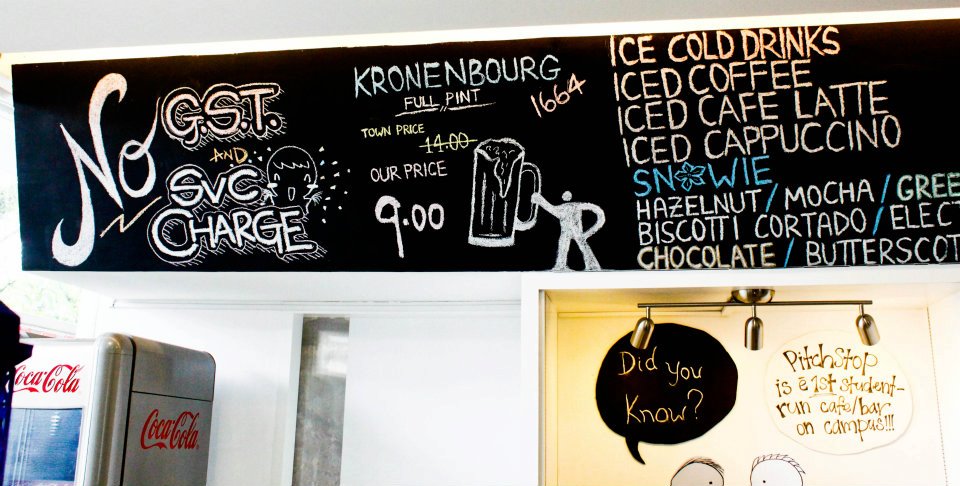 No G.S.T.
AND
SVC
CHARGE
KRONENBOURG
1664
FULL PINT
TOWN PRICE
14.00
OUR PRICE
9.00
ICE COLD DRINKS
ICED COFFEE
ICED CAFE LATTE
ICED CAPPUCCINO
SNOWIE
HAZELNUT / MOCHA / GREE
BISCOTTI CORTADO / ELECT
CHOCOLATE / BUTTERSCOT
Coca-Cola
Coca-Cola
Did you
Know?
PitchStop
is a 1st student-
run cafe/bar
on campus!!!